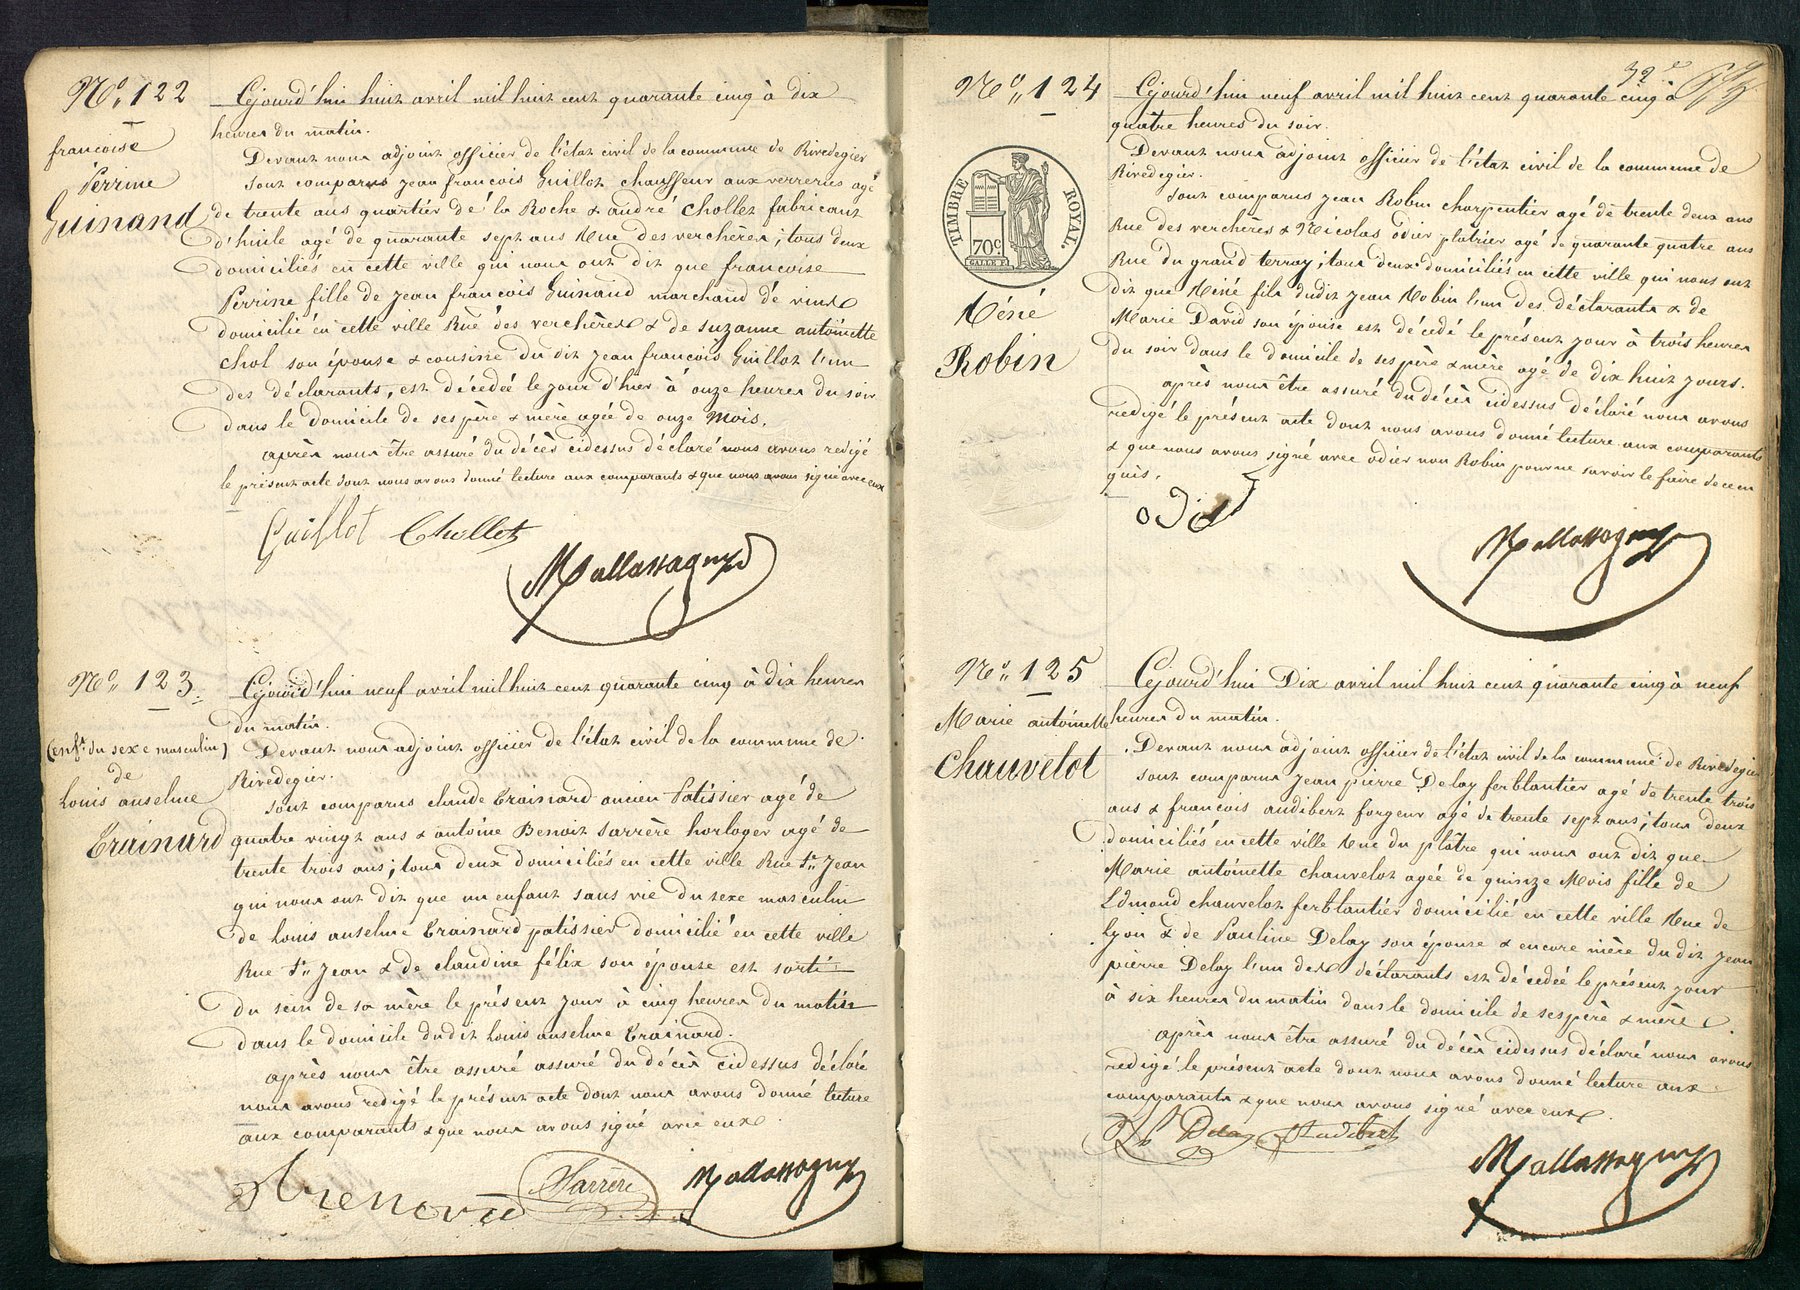 N.o 122
françoise
Perrine
Guinand
Cejourd'hui huit avril mil huit cent quarante cinq à dix
heures du matin.
Devant nous adjoint officier de l'état civil de la commune de Rivedegier
sont comparus jean françois Guillot chauffeur aux verreries agé
de trente ans quartier de la Roche & andré chollet fabricant
d'huile agé de quarante sept ans Rue des verchères; tous deux
domiciliés en cette ville qui nous ont dit que françoise
Perrine fille de jean françois Guinand marchand de vins
domicilié en cette ville Rue des verchères & de suzanne antoinette
chol son épouse & cousine du dit jean françois Guillot l'un
des déclarants, est décedée le jour d'hier à onze heures du soir
dans le domicile de ses père & mère agée de onze mois.
après nous être assuré du décès cidessus déclaré nous avons redigé
le présent acte dont nous avons donné lecture aux comparants & que nous avons signé avec eux
Guillot Chollet
Mallassagny
N.o 123.
(enft du sexe masculin)
de
Louis anselme
Trainard
Cejourd'hui neuf avril mil huit cent quarante cinq à dix heures
du matin.
Devant nous adjoint officier de l'état civil de la commune de
Rivedegier.
sont comparus claude Trainard ancien Patissier agé de
quatre vingt ans & antoine Benoit Sarrère horloger agé de
trente trois ans; tous deux domiciliés en cette ville Rue St Jean
qui nous ont dit que un enfant sans vie du sexe masculin
de Louis anselme Trainard patissier domicilié en cette ville
Rue St Jean & de claudine félix son épouse est sorti
du sein de sa mère le présent jour à cinq heures du matin
dans le domicile dudit Louis anselme Trainard.
après nous être assuré assuré du décès cidessus déclaré
nous avons redigé le présent acte dont nous avons donné lecture
aux comparants & que nous avons signé avec eux.
Sarrère Mallassagny
N.o 124
TIMBRE ROYAL.
70c
Réné
Robin
Cejourd'hui neuf avril mil huit cent quarante cinq à
quatre heures du soir.
Devant nous adjoint officier de l'état civil de la commune de
Rivedegier.
sont comparus jean Robin charpentier agé de trente deux ans
Rue des verchères & Nicolas odier plâtrier agé de quarante quatre ans
Rue du grand terray; tous deux domiciliés en cette ville qui nous ont
dit que Réné fils dudit jean Robin l'un des déclarants & de
Marie David son épouse est décedé le présent jour à trois heures
du soir dans le domicile de ses père & mère agé de dix huit jours.
après nous être assuré du décès cidessus déclaré nous avons
redigé le présent acte dont nous avons donné lecture aux comparants
& que nous avons signé avec odier non Robin pour ne savoir le faire de ce en
quis.
odier
Mallassagny
N.o 125
Marie antoinette
Chauvelot
Cejourd'hui Dix avril mil huit cent quarante cinq à neuf
heures du matin.
Devant nous adjoint officier de l'état civil de la commune de Rivedegier
sont comparus jean pierre Delay ferblantier agé de trente trois
ans & françois audibert forgeur agé de trente sept ans; tous deux
domiciliés en cette ville Rue du plâtre qui nous ont dit que
Marie antoinette chauvelot agée de quinze mois fille de
Edmond chauvelot ferblantier domicilié en cette ville Rue de
Lyon & de Pauline Delay son épouse & encore nièce du dit jean
pierre Delay l'un des déclarants est décedée le présent jour
à six heures du matin dans le domicile de ses père & mère.
après nous être assuré du décès cidessus déclaré nous avons
redigé le présent acte dont nous avons donné lecture aux
comparants & que nous avons signé avec eux.
Delay Audibert
Mallassagny